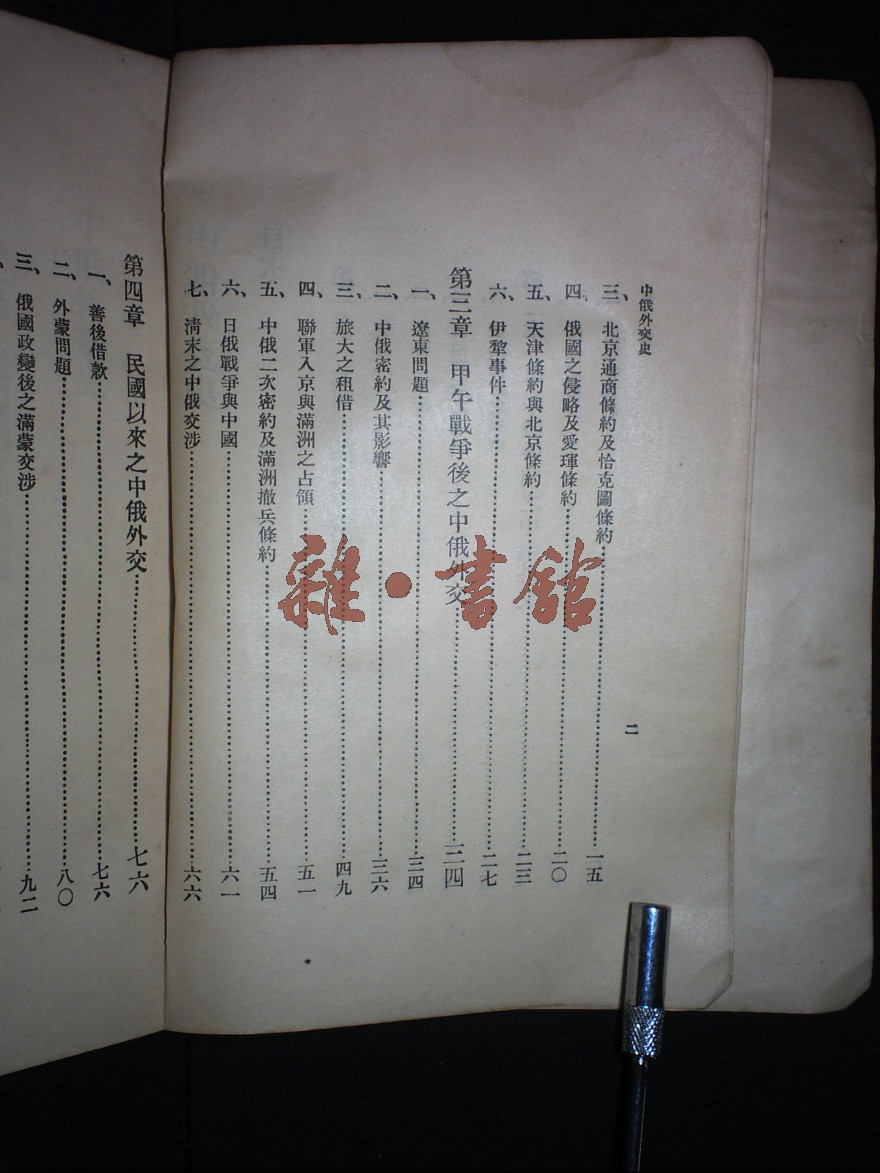 中俄外交史
三、北京通商條約及恰克圖條約……一五
四、俄國之侵略及愛琿條約……二〇
五、天津條約與北京條約……二三
六、伊犂事件……二七
第三章 甲午戰爭後之中俄外交……三四
一、遼東問題……三四
二、中俄密約及其影響……三六
三、旅大之租借……四九
四、聯軍入京與滿洲之占領……五一
五、中俄二次密約及滿洲撤兵條約……五四
六、日俄戰爭與中國……六一
七、淸末之中俄交涉……六六
二
第四章 民國以來之中俄外交……七六
一、善後借款……七六
二、外蒙問題……八〇
三、俄國政變後之滿蒙交涉……九二
雜·書館